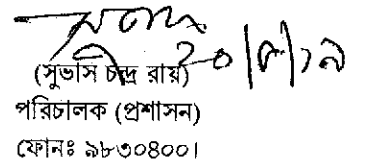 (সুভাস চন্দ্র রায়)
পরিচালক (প্রশাসন)
ফোনঃ ৯৮৩০৪০০।